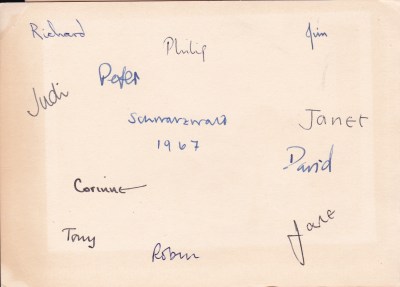 Richard
Philip
Jim
Peter
Judi
Schwarzwald
1967
Janet
David
Corinne
Jane
Tony
Robin